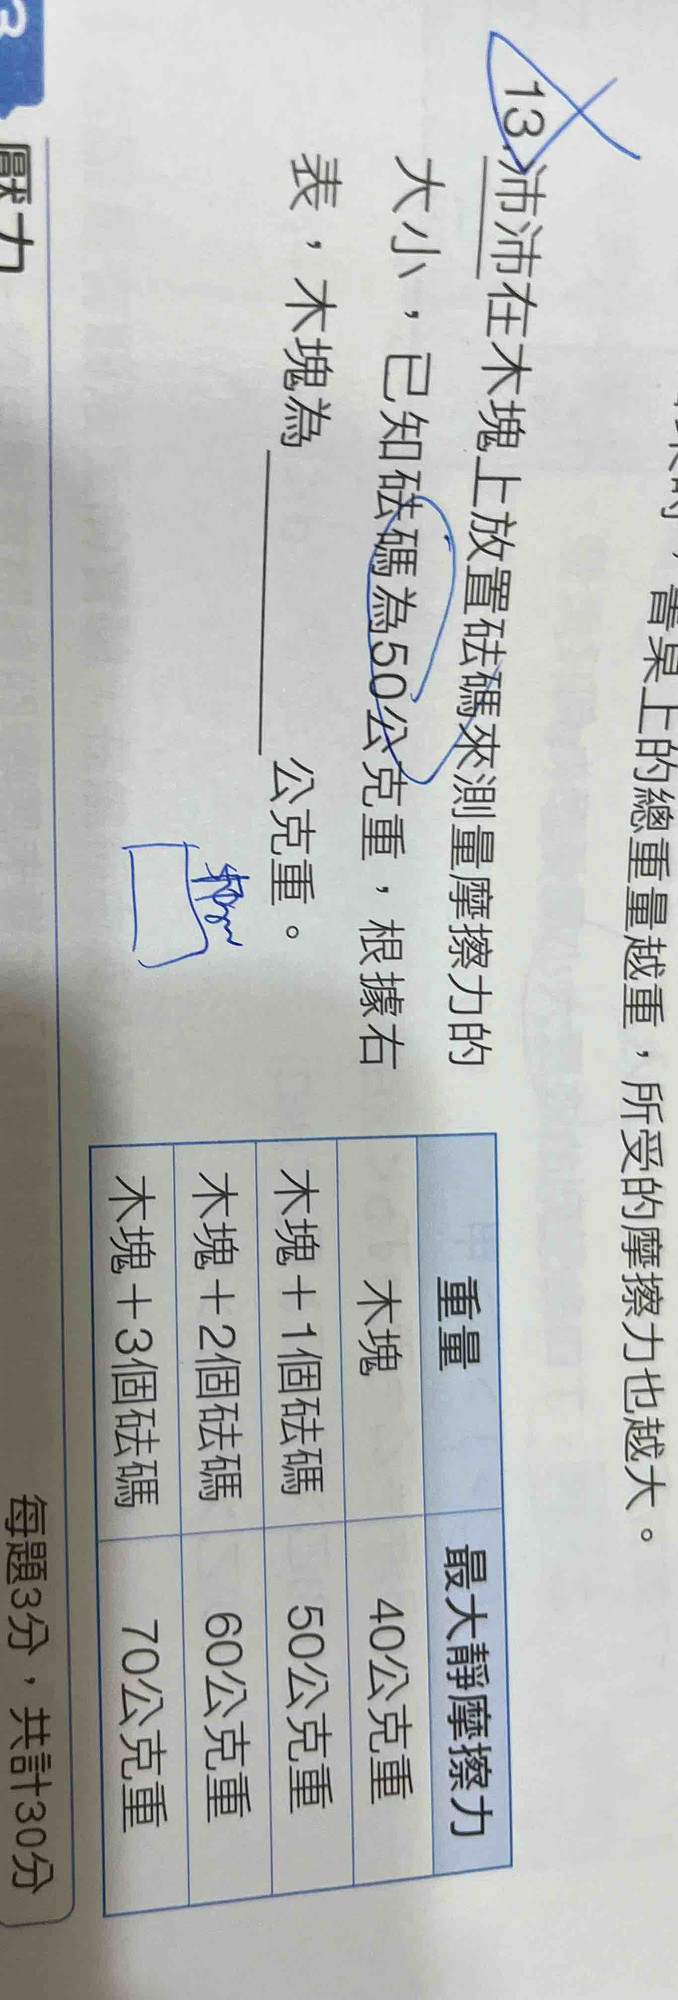 書桌上的總重量越重，所受的摩擦力也越大。
13.沛沛在木塊上放置砝碼來測量摩擦力的
大小，已知砝碼為50公克重，根據右
表，木塊為＿＿＿＿公克重。
重量 最大靜摩擦力
木塊 40公克重
木塊＋1個砝碼 50公克重
木塊＋2個砝碼 60公克重
木塊＋3個砝碼 70公克重
3 壓力
每題3分，共計30分